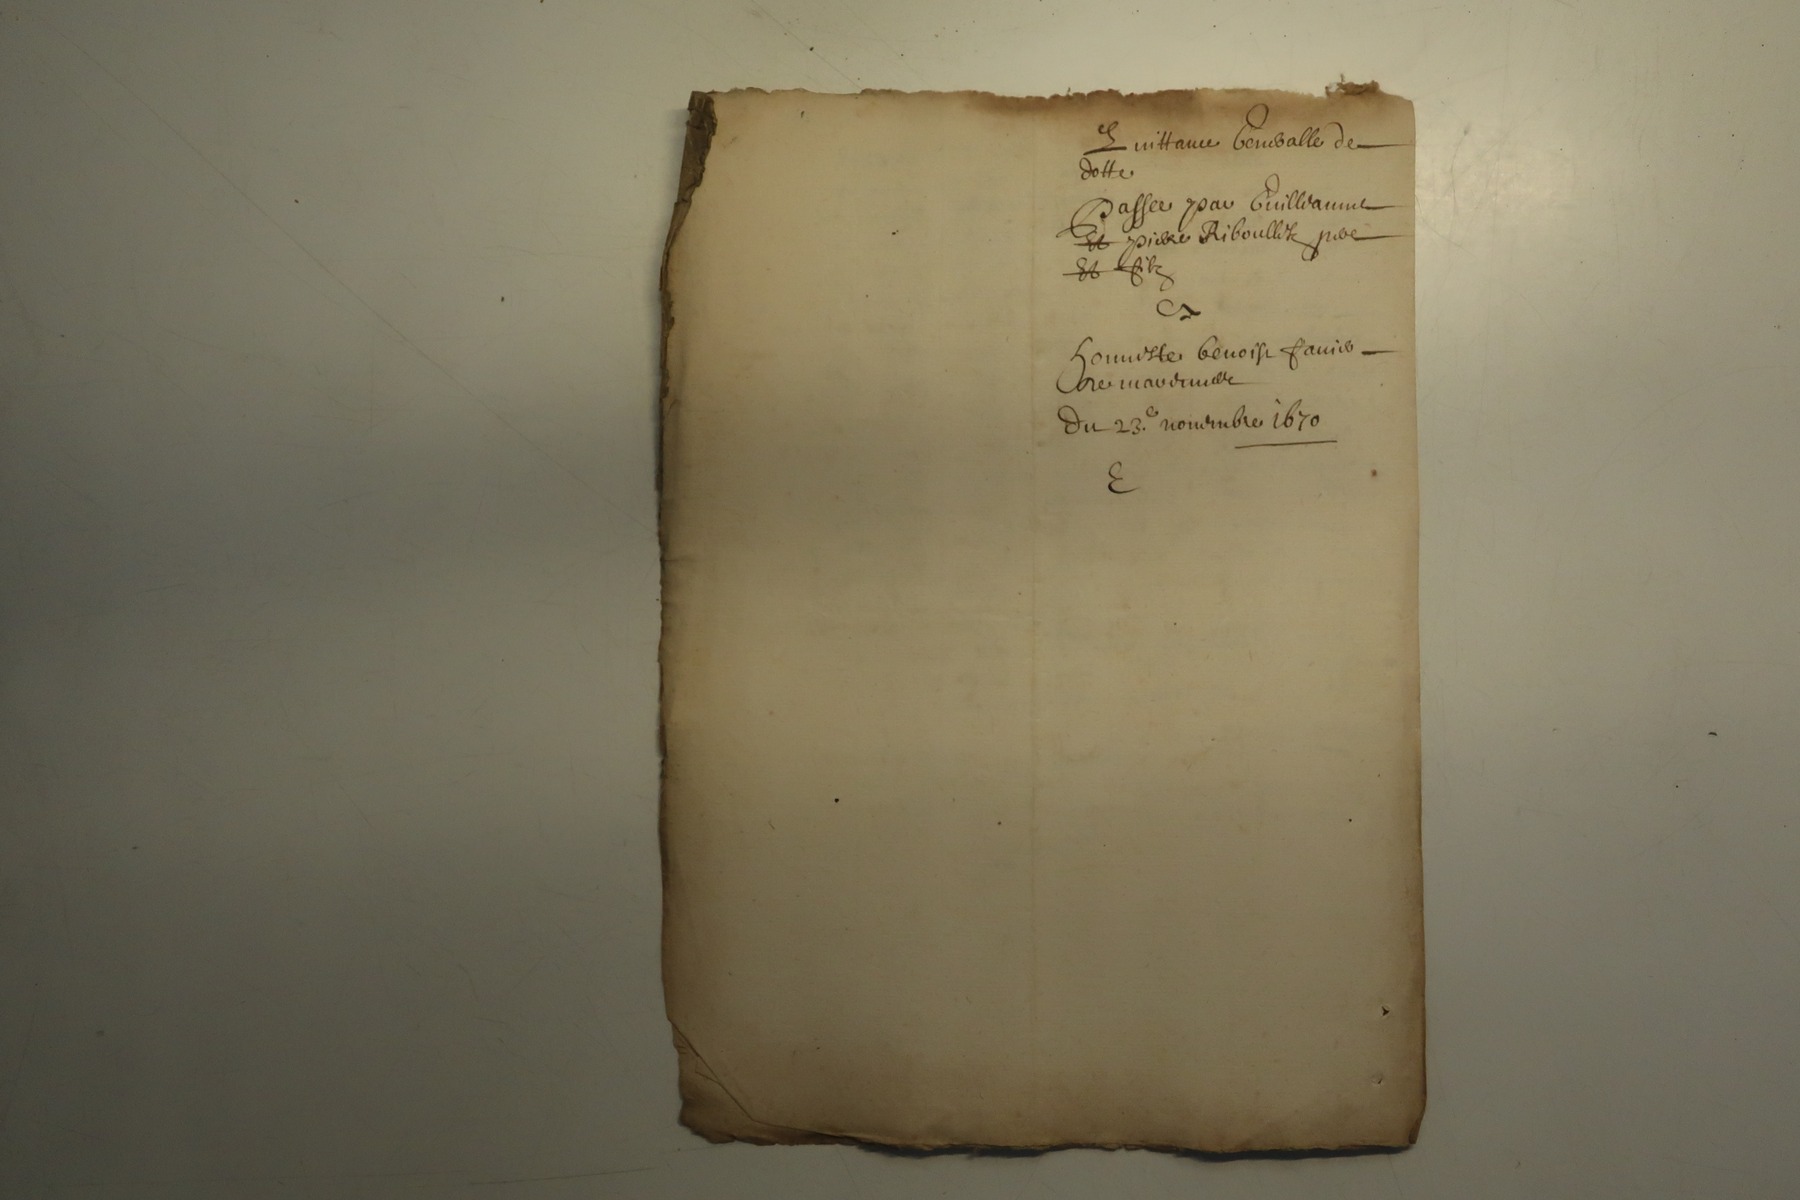 Quittance generalle de
dotte
Passee par Guilleaume
Et pierre Riboullet pere
Et filz
A
honneste benoist
du 23.e novembre 1670
E